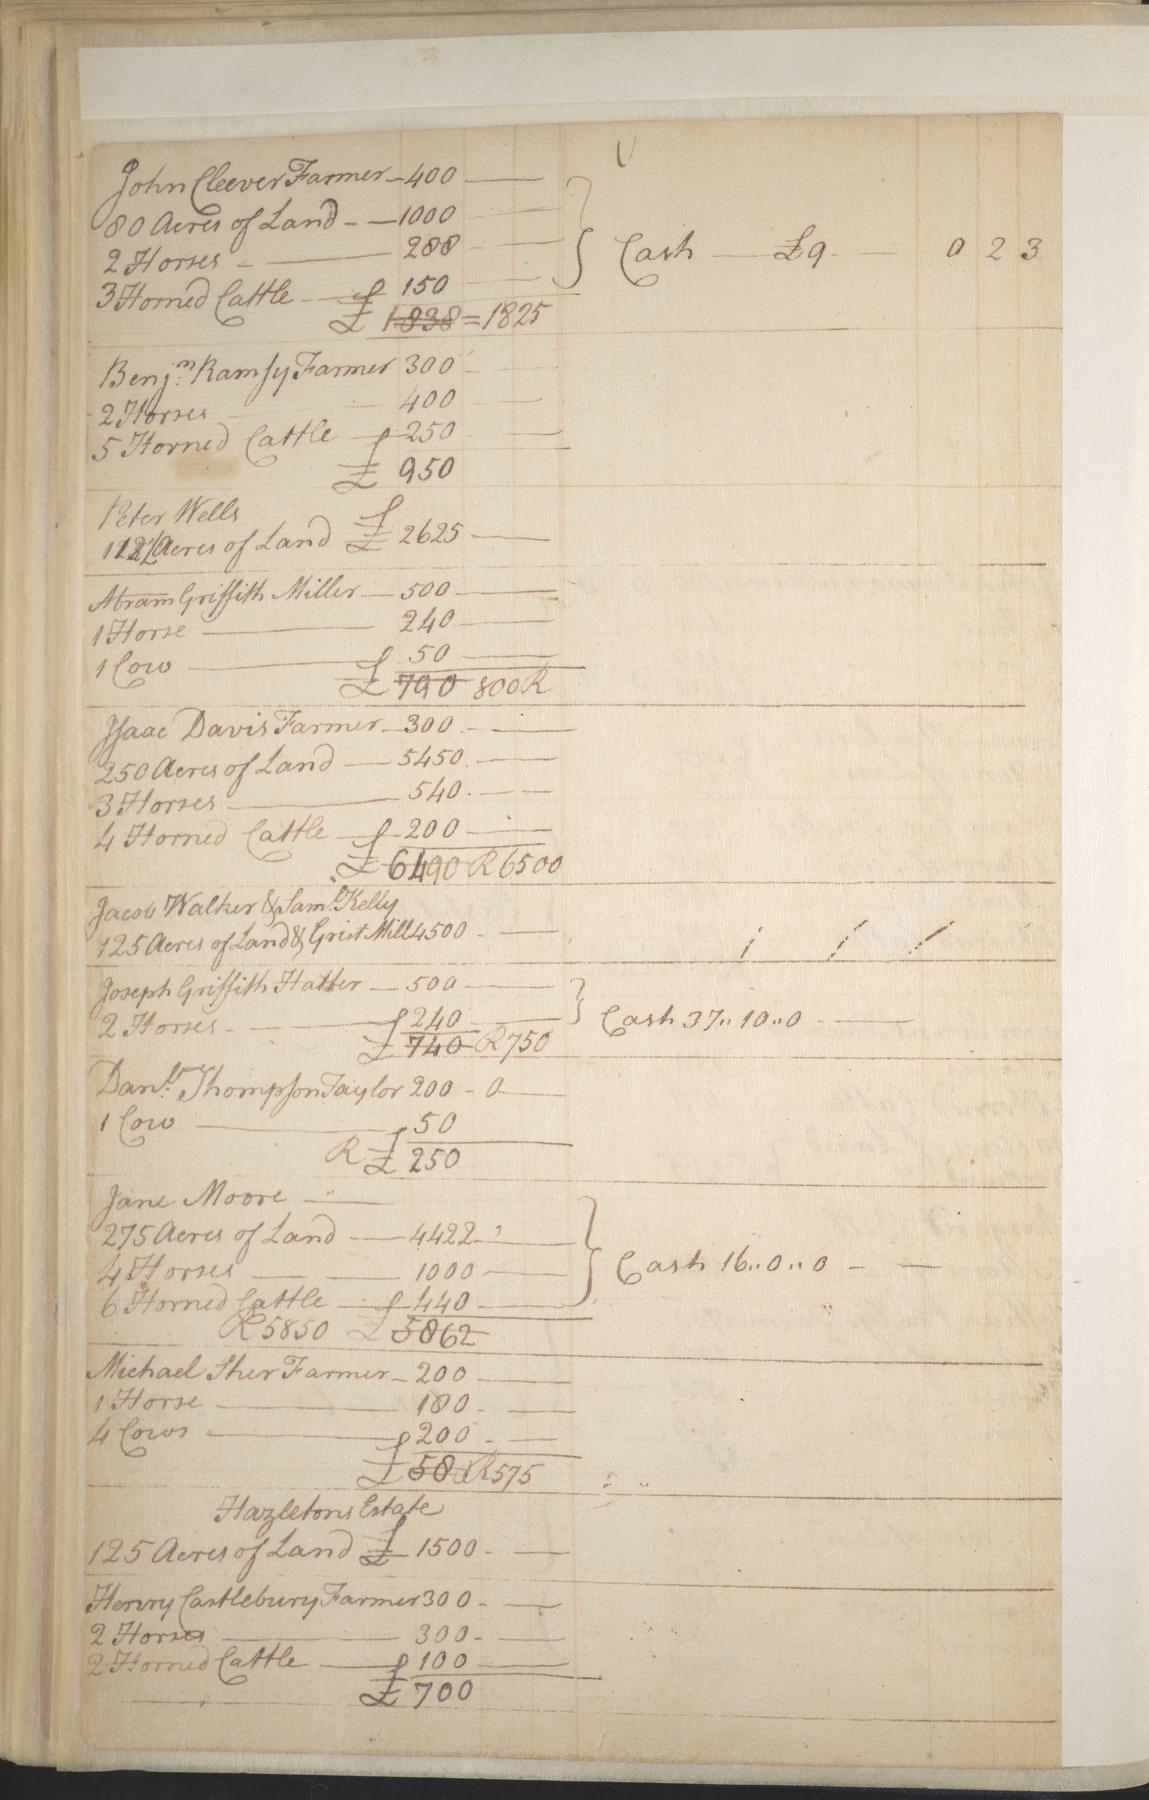 John Cleever Farmer — 400
80 Acres of Land — 1000
2 Horses — 288
Cash — £9 — 0 2 3
3 Horned Cattle — £ 150
£ 1838 = 1825
Benjm. Ramsy Farmer 300
2 Horses 400
5 Horned Cattle — 250
£ 950
Peter Wells
Acres of Land £ 2625
Abram Griffith Miller — 500
1 Horse — 240
1 Cow — 50
£ 790 800 R
Isaac Davis Farmer — 300
250 Acres of Land — 5450
3 Horses — 540
4 Horned Cattle — 200
£ 6490 R 6500
Jacob Walker & Saml. Kelly
125 Acres of Land & Grist Mill 4500
Joseph Griffith Hatter — 500
2 Horses — 240
Cash 37..10..0
£ 740 R 750
Danl. Thompson Taylor 200 - 0
1 Cow — 50
R £ 250
Jane Moore
275 Acres of Land — 4422
4 Horses — 1000
Cash 16..0..0
6 Horned Cattle — 440
R 5850 £ 5862
Michael Sher Farmer — 200
1 Horse — 180
4 Cows — 200
£ 580 R 575
Hazletons Estate
125 Acres of Land £ 1500
Henry Castlebury Farmer 300
2 Horses — 300
2 Horned Cattle — 100
£ 700